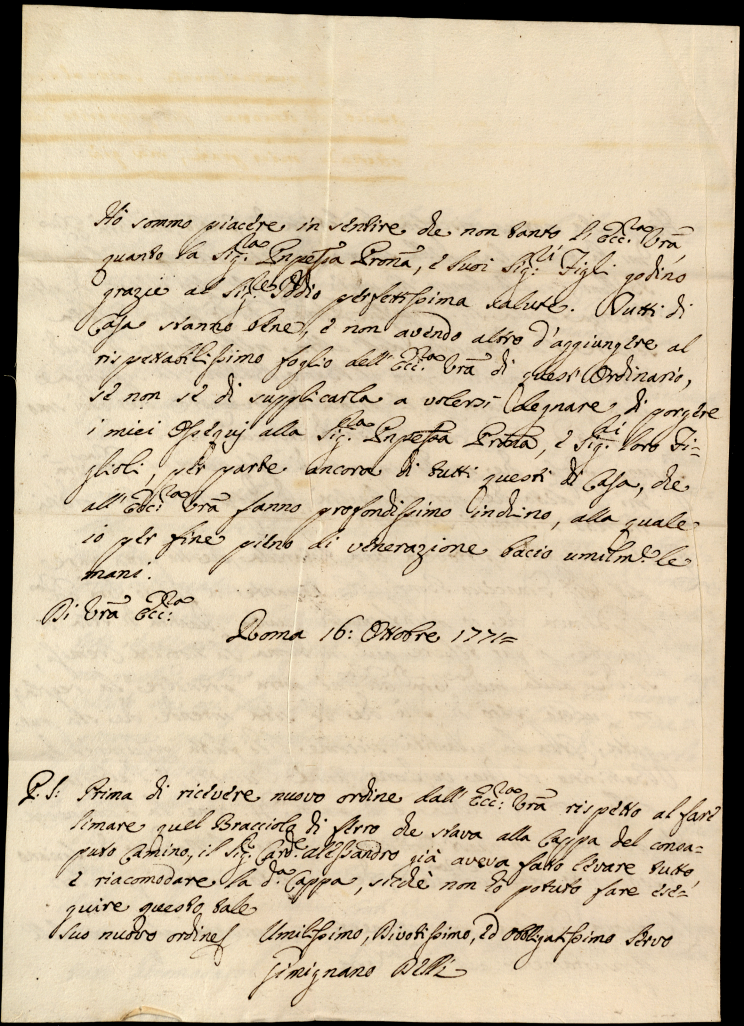 Hò sommo piacére in sentire che non tanto l'Ecc:za Vrã,
quanto la Sig:ra Pnpessa Prona, e suoi Sig:li Figli godino
grazie al Sig:re Iddio perfettissima salute. Tutti di
Casa stanno bene, e non avendo altro d'aggiungere al
rispettabilissimo foglio dell'Ecc:za Vrã di quest'Ordinario,
se non se di supplicarla a volersi degnare, di porgere
i miei Ossequj alla Sig:ra Pnpessa Prona, e Sig:ri loro Fi=
glioli, per parte ancora di tutti questi di Casa, che
all'Ecc:za Vrã fanno profondissimo inchino, alla quale
io per fine pieno di venerazione bacio umilm:e le
mani.
Di Vrã Ecc:za
Roma 16: Ottobre 1771=
P.S: Prima di ricévere nuovo ordine dall'Ecc:za Vrã rispetto al fare
limare quel Bracciolo di ferro che stava alla Cappa del consa=
puto Camino, il Sig:r Card:e Alessandro già aveva fatto levare tutto
e riacomodare la d:a Cappa, sichè non hò potuto fare ese=
quire questo tale
suo nuovo ordine Umilissimo, Divotissimo, ed Obbligatissimo Servo
Gimignano Belli